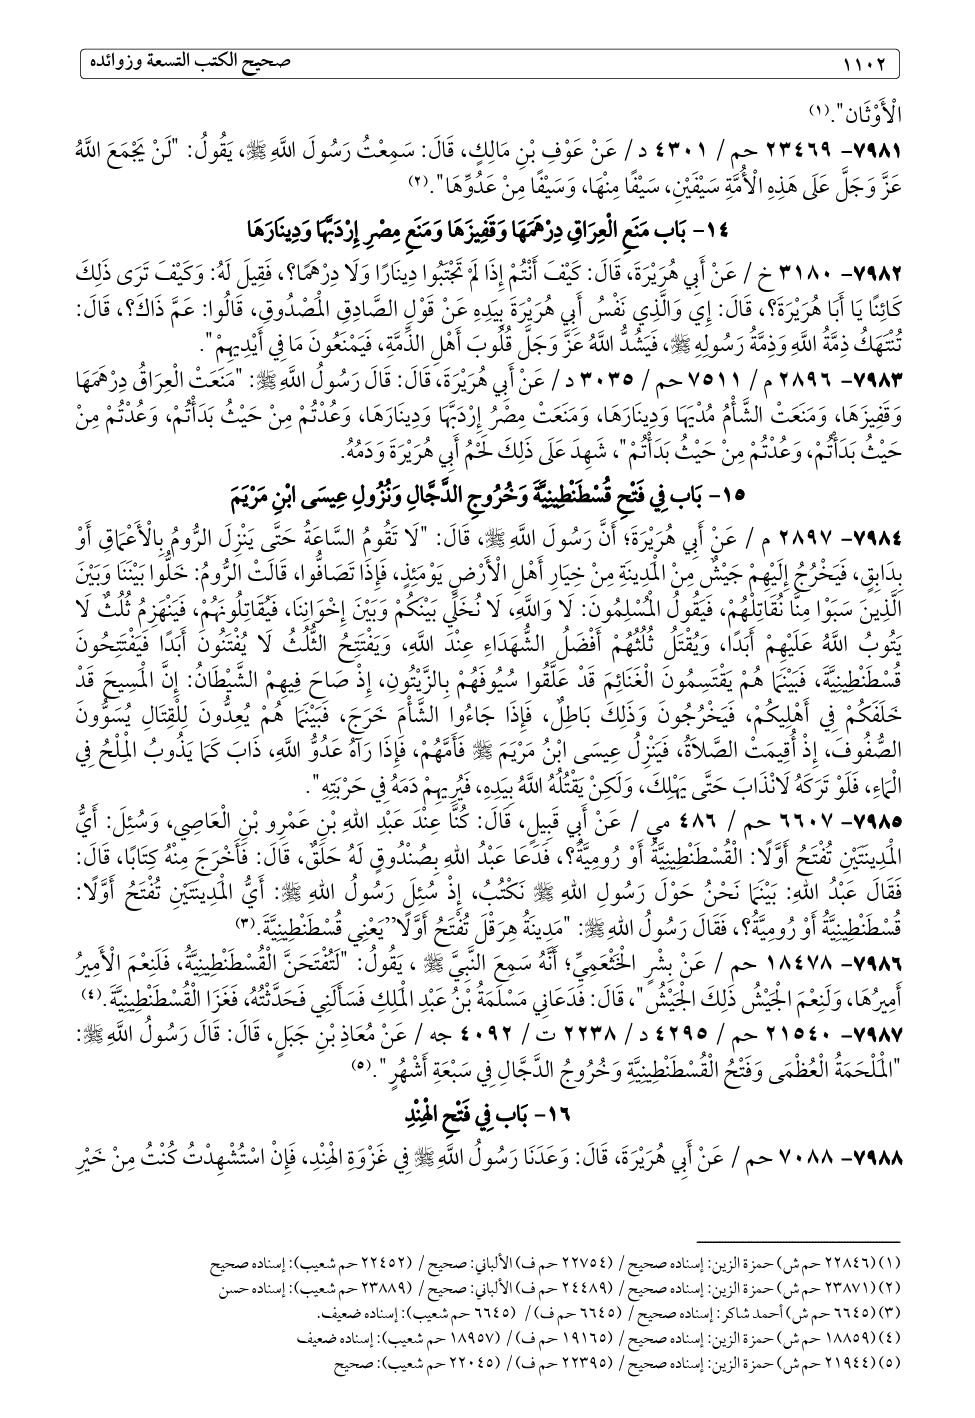 ١١٠٢ صحيح الكتب التسعة وزوائده
الْأَوْثَان".(١)
٧٩٨١- ٢٣٤٦٩ حم / ٤٣٠١ د/ عَنْ عَوْفِ بْنِ مَالِكٍ، قَالَ: سَمِعْتُ رَسُولَ اللَّهِ ﷺ، يَقُولُ: "لَنْ يَجْمَعَ اللَّهُ
عَزَّ وَجَلَّ عَلَى هَذِهِ الْأُمَّةِ سَيْفَيْنِ، سَيْفًا مِنْهَا، وَسَيْفًا مِنْ عَدُوِّهَا".(٢)
١٤- بَاب مَنَعِ الْعِرَاقِ دِرْهَمَهَا وَقَفِيزَهَا وَمَنَعِ مِصْرِ إِرْدَبَّهَا وَدِينَارَهَا
٧٩٨٢- ٣١٨٠ خ / عَنْ أَبِي هُرَيْرَةَ، قَالَ: كَيْفَ أَنْتُمْ إِذَا لَمْ تَجْتَبُوا دِينَارًا وَلَا دِرْهَمًا؟، فَقِيلَ لَهُ: وَكَيْفَ تَرَى ذَلِكَ
كَائِنًا يَا أَبَا هُرَيْرَةَ؟، قَالَ: إِي وَالَّذِي نَفْسُ أَبِي هُرَيْرَةَ بِيَدِهِ عَنْ قَوْلِ الصَّادِقِ الْمَصْدُوقِ، قَالُوا: عَمَّ ذَاكَ؟، قَالَ:
تُنْتَهَكُ ذِمَّةُ اللَّهِ وَذِمَّةُ رَسُولِهِ ﷺ، فَيَشُدُّ اللَّهُ عَزَّ وَجَلَّ قُلُوبَ أَهْلِ الذِّمَّةِ، فَيَمْنَعُونَ مَا فِي أَيْدِيهِمْ".
٧٩٨٣- ٢٨٩٦ م / ٧٥١١ حم / ٣٠٣٥ د/ عَنْ أَبِي هُرَيْرَةَ، قَالَ: قَالَ رَسُولُ اللَّهِ ﷺ: "مَنَعَتْ الْعِرَاقُ دِرْهَمَهَا
وَقَفِيزَهَا، وَمَنَعَتْ الشَّأْمُ مُدْيَهَا وَدِينَارَهَا، وَمَنَعَتْ مِصْرُ إِرْدَبَّهَا وَدِينَارَهَا، وَعُدْتُمْ مِنْ حَيْثُ بَدَأْتُمْ، وَعُدْتُمْ مِنْ
حَيْثُ بَدَأْتُمْ، وَعُدْتُمْ مِنْ حَيْثُ بَدَأْتُمْ"، شَهِدَ عَلَى ذَلِكَ لَحْمُ أَبِي هُرَيْرَةَ وَدَمُهُ.
١٥- بَاب فِي فَتْحِ قُسْطَنْطِينِيَّةَ وَخُرُوجِ الدَّجَّالِ وَنُزُولِ عِيسَى ابْنِ مَرْيَمَ
٧٩٨٤- ٢٨٩٧ م / عَنْ أَبِي هُرَيْرَةَ؛ أَنَّ رَسُولَ اللَّهِ ﷺ، قَالَ: "لَا تَقُومُ السَّاعَةُ حَتَّى يَنْزِلَ الرُّومُ بِالْأَعْمَاقِ أَوْ
بِدَابِقٍ، فَيَخْرُجُ إِلَيْهِمْ جَيْشٌ مِنْ الْمَدِينَةِ مِنْ خِيَارِ أَهْلِ الْأَرْضِ يَوْمَئِذٍ، فَإِذَا تَصَافُّوا، قَالَتْ الرُّومُ: خَلُّوا بَيْنَنَا وَبَيْنَ
الَّذِينَ سَبَوْا مِنَّا نُقَاتِلْهُمْ، فَيَقُولُ الْمُسْلِمُونَ: لَا وَاللَّهِ، لَا نُخَلِّي بَيْنَكُمْ وَبَيْنَ إِخْوَانِنَا، فَيُقَاتِلُونَهُمْ، فَيَنْهَزِمُ ثُلُثٌ لَا
يَتُوبُ اللَّهُ عَلَيْهِمْ أَبَدًا، وَيُقْتَلُ ثُلُثُهُمْ أَفْضَلُ الشُّهَدَاءِ عِنْدَ اللَّهِ، وَيَفْتَتِحُ الثُّلُثُ لَا يُفْتَنُونَ أَبَدًا فَيَفْتَتِحُونَ
قُسْطَنْطِينِيَّةَ، فَبَيْنَمَا هُمْ يَقْتَسِمُونَ الْغَنَائِمَ قَدْ عَلَّقُوا سُيُوفَهُمْ بِالزَّيْتُونِ، إِذْ صَاحَ فِيهِمْ الشَّيْطَانُ: إِنَّ الْمَسِيحَ قَدْ
خَلَفَكُمْ فِي أَهْلِيكُمْ، فَيَخْرُجُونَ وَذَلِكَ بَاطِلٌ، فَإِذَا جَاءُوا الشَّأْمَ خَرَجَ، فَبَيْنَمَا هُمْ يُعِدُّونَ لِلْقِتَالِ يُسَوُّونَ
الصُّفُوفَ، إِذْ أُقِيمَتْ الصَّلَاةُ، فَيَنْزِلُ عِيسَى ابْنُ مَرْيَمَ ﷺ فَأَمَّهُمْ، فَإِذَا رَآهُ عَدُوُّ اللَّهِ، ذَابَ كَمَا يَذُوبُ الْمِلْحُ فِي
الْمَاءِ، فَلَوْ تَرَكَهُ لَانْذَابَ حَتَّى يَهْلِكَ، وَلَكِنْ يَقْتُلُهُ اللَّهُ بِيَدِهِ، فَيُرِيهِمْ دَمَهُ فِي حَرْبَتِهِ".
٧٩٨٥- ٦٦٠٧ حم / ٤٨٦ مي / عَنْ أَبِي قَبِيلٍ، قَالَ: كُنَّا عِنْدَ عَبْدِ اللهِ بْنِ عَمْرِو بْنِ الْعَاصِي، وَسُئِلَ: أَيُّ
الْمَدِينَتَيْنِ تُفْتَحُ أَوَّلًا: الْقُسْطَنْطِينِيَّةُ أَوْ رُومِيَّةُ؟، فَدَعَا عَبْدُ اللهِ بِصُنْدُوقٍ لَهُ حَلَقٌ، قَالَ: فَأَخْرَجَ مِنْهُ كِتَابًا، قَالَ:
فَقَالَ عَبْدُ اللهِ: بَيْنَمَا نَحْنُ حَوْلَ رَسُولِ اللهِ ﷺ نَكْتُبُ، إِذْ سُئِلَ رَسُولُ اللهِ ﷺ: أَيُّ الْمَدِينَتَيْنِ تُفْتَحُ أَوَّلًا:
قُسْطَنْطِينِيَّةُ أَوْ رُومِيَّةُ؟، فَقَالَ رَسُولُ اللهِ ﷺ: "مَدِينَةُ هِرَقْلَ تُفْتَحُ أَوَّلًا" يَعْنِي قُسْطَنْطِينِيَّةَ.(٣)
٧٩٨٦- ١٨٤٧٨ حم / عَنْ بِشْرٍ الْخَثْعَمِيِّ؛ أَنَّهُ سَمِعَ النَّبِيَّ ﷺ ، يَقُولُ: "لَتُفْتَحَنَّ الْقُسْطَنْطِينِيَّةُ، فَلَنِعْمَ الْأَمِيرُ
أَمِيرُهَا، وَلَنِعْمَ الْجَيْشُ ذَلِكَ الْجَيْشُ"، قَالَ: فَدَعَانِي مَسْلَمَةُ بْنُ عَبْدِ الْمَلِكِ فَسَأَلَنِي فَحَدَّثْتُهُ، فَغَزَا الْقُسْطَنْطِينِيَّةَ.(٤)
٧٩٨٧- ٢١٥٤٠ حم / ٤٢٩٥ د/ ٢٢٣٨ ت / ٤٠٩٢ جه / عَنْ مُعَاذِ بْنِ جَبَلٍ، قَالَ: قَالَ رَسُولُ اللَّهِ ﷺ:
"الْمَلْحَمَةُ الْعُظْمَى وَفَتْحُ الْقُسْطَنْطِينِيَّةِ وَخُرُوجُ الدَّجَّالِ فِي سَبْعَةِ أَشْهُرٍ".(٥)
١٦- بَاب فِي فَتْحِ الْهِنْدِ
٧٩٨٨- ٧٠٨٨ حم / عَنْ أَبِي هُرَيْرَةَ، قَالَ: وَعَدَنَا رَسُولُ اللَّهِ ﷺ فِي غَزْوَةِ الْهِنْدِ، فَإِنْ اسْتُشْهِدْتُ كُنْتُ مِنْ خَيْرِ
(١) (٢٢٨٤٦ حم ش) حمزة الزين: إسناده صحيح / (٢٢٧٥٤ حم ف) الألباني: صحيح / (٢٢٤٥٢ حم شعيب): إسناده صحيح
(٢) (٢٣٨٧١ حم ش) حمزة الزين: إسناده صحيح / (٢٤٤٨٩ حم ف) الألباني: صحيح / (٢٣٨٨٩ حم شعيب): إسناده حسن
(٣) (٦٦٤٥ حم ش) أحمد شاكر: إسناده صحيح / (٦٦٤٥ حم ف) / (٦٦٤٥ حم شعيب): إسناده ضعيف.
(٤) (١٨٨٥٩ حم ش) حمزة الزين: إسناده صحيح / (١٩١٦٥ حم ف) / (١٨٩٥٧ حم شعيب): إسناده ضعيف
(٥) (٢١٩٤٤ حم ش) حمزة الزين: إسناده صحيح / (٢٢٣٩٥ حم ف) / (٢٢٠٤٥ حم شعيب): صحيح